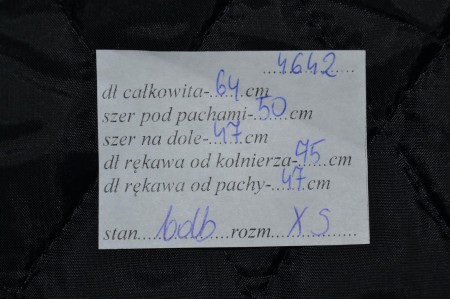 ...4642...
dł całkowita-..64..cm
szer pod pachami-.50..cm
szer na dole-..47...cm
dł rękawa od kołnierza-..75...cm
dł rękawa od pachy-..47..cm
stan....bdb....rozm....XS....